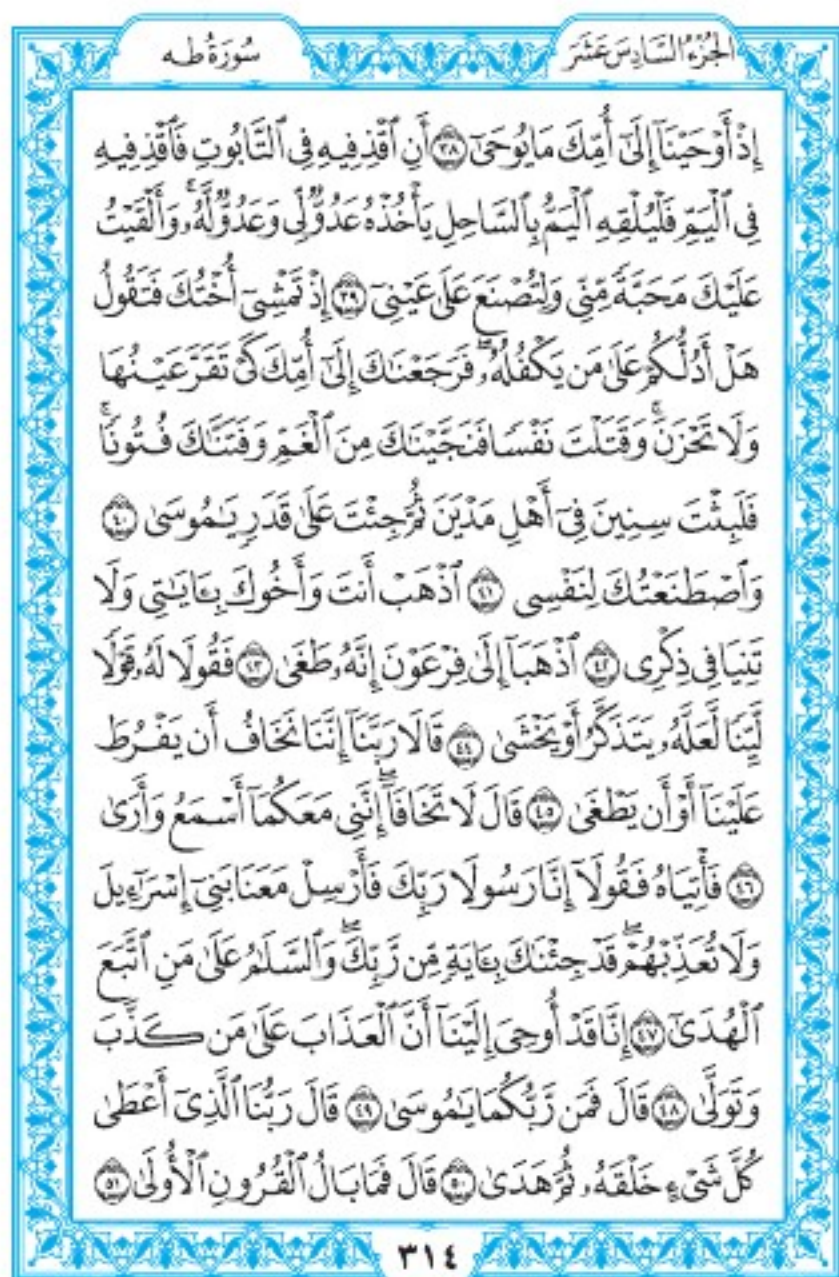 الجزء السادس عشر
سورة طه
إِذْ أَوْحَيْنَآ إِلَىٰٓ أُمِّكَ مَا يُوحَىٰٓ ٣٨ أَنِ ٱقْذِفِيهِ فِى ٱلتَّابُوتِ فَٱقْذِفِيهِ
فِى ٱلْيَمِّ فَلْيُلْقِهِ ٱلْيَمُّ بِٱلسَّاحِلِ يَأْخُذْهُ عَدُوٌّ لِّى وَعَدُوٌّ لَّهُۥ ۚ وَأَلْقَيْتُ
عَلَيْكَ مَحَبَّةً مِّنِّى وَلِتُصْنَعَ عَلَىٰ عَيْنِىٓ ٣٩ إِذْ تَمْشِىٓ أُخْتُكَ فَتَقُولُ
هَلْ أَدُلُّكُمْ عَلَىٰ مَن يَكْفُلُهُۥ ۖ فَرَجَعْنَٰكَ إِلَىٰٓ أُمِّكَ كَىْ تَقَرَّ عَيْنُهَا
وَلَا تَحْزَنَ ۚ وَقَتَلْتَ نَفْسًا فَنَجَّيْنَٰكَ مِنَ ٱلْغَمِّ وَفَتَنَّٰكَ فُتُونًا ۚ
فَلَبِثْتَ سِنِينَ فِىٓ أَهْلِ مَدْيَنَ ثُمَّ جِئْتَ عَلَىٰ قَدَرٍ يَٰمُوسَىٰ ٤٠
وَٱصْطَنَعْتُكَ لِنَفْسِى ٤١ ٱذْهَبْ أَنتَ وَأَخُوكَ بِـَٔايَٰتِى وَلَا
تَنِيَا فِى ذِكْرِى ٤٢ ٱذْهَبَآ إِلَىٰ فِرْعَوْنَ إِنَّهُۥ طَغَىٰ ٤٣ فَقُولَا لَهُۥ قَوْلًا
لَّيِّنًا لَّعَلَّهُۥ يَتَذَكَّرُ أَوْ يَخْشَىٰ ٤٤ قَالَا رَبَّنَآ إِنَّنَا نَخَافُ أَن يَفْرُطَ
عَلَيْنَآ أَوْ أَن يَطْغَىٰ ٤٥ قَالَ لَا تَخَافَآ ۖ إِنَّنِى مَعَكُمَآ أَسْمَعُ وَأَرَىٰ
٤٦ فَأْتِيَاهُ فَقُولَآ إِنَّا رَسُولَا رَبِّكَ فَأَرْسِلْ مَعَنَا بَنِىٓ إِسْرَٰٓءِيلَ
وَلَا تُعَذِّبْهُمْ ۖ قَدْ جِئْنَٰكَ بِـَٔايَةٍ مِّن رَّبِّكَ ۖ وَٱلسَّلَٰمُ عَلَىٰ مَنِ ٱتَّبَعَ
ٱلْهُدَىٰٓ ٤٧ إِنَّا قَدْ أُوحِىَ إِلَيْنَآ أَنَّ ٱلْعَذَابَ عَلَىٰ مَن كَذَّبَ
وَتَوَلَّىٰ ٤٨ قَالَ فَمَن رَّبُّكُمَا يَٰمُوسَىٰ ٤٩ قَالَ رَبُّنَا ٱلَّذِىٓ أَعْطَىٰ
كُلَّ شَىْءٍ خَلْقَهُۥ ثُمَّ هَدَىٰ ٥٠ قَالَ فَمَا بَالُ ٱلْقُرُونِ ٱلْأُولَىٰ ٥١
٣١٤